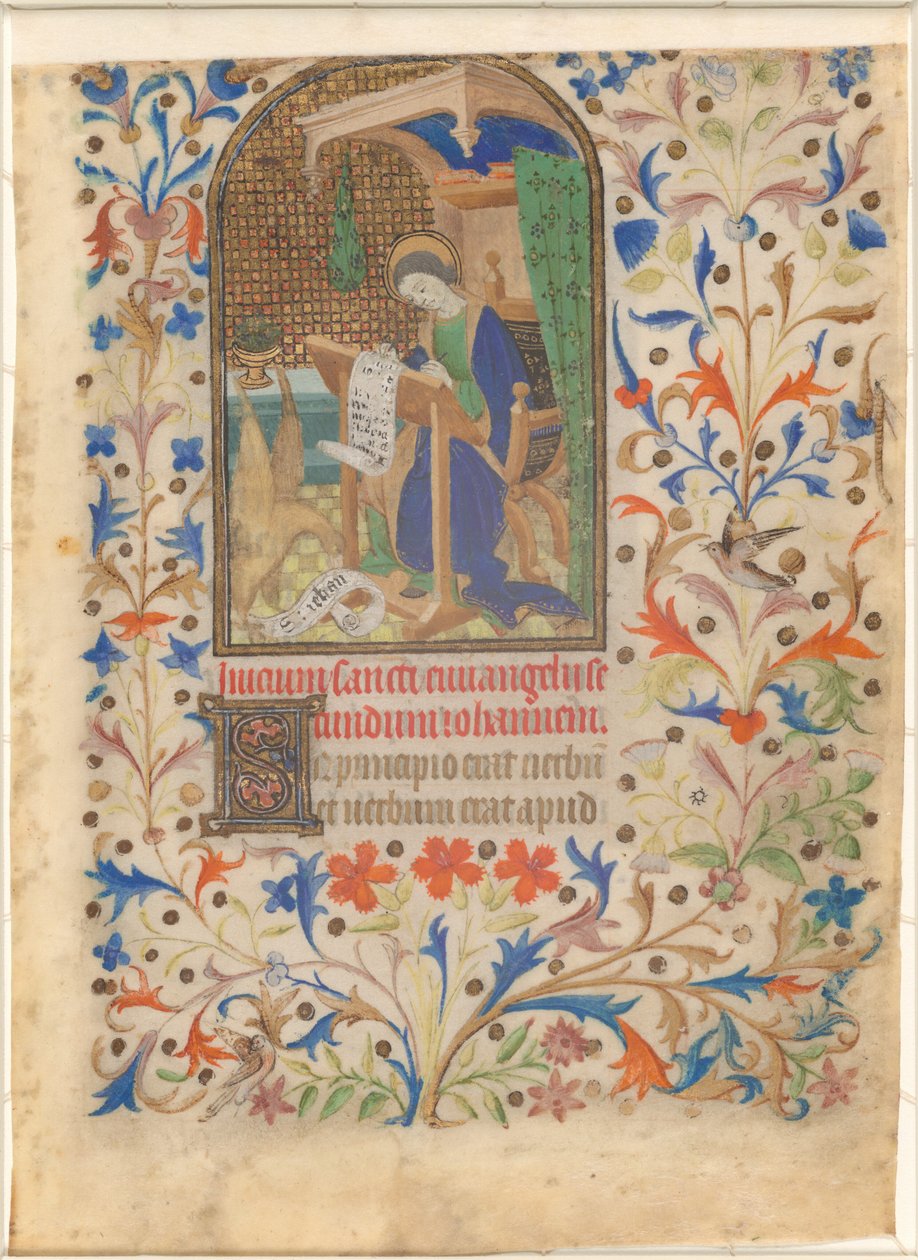 S. iehan
Inicium sancti euuangelij se
cundum iohannem.
In principio erat uerbū
et uerbum erat apud